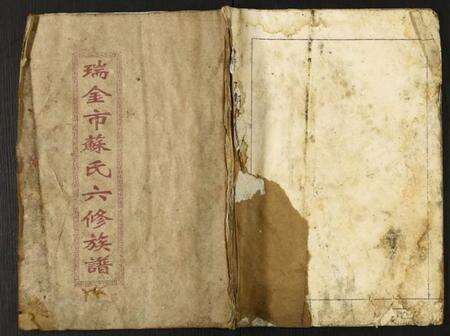 瑞金市蘇氏六修族譜